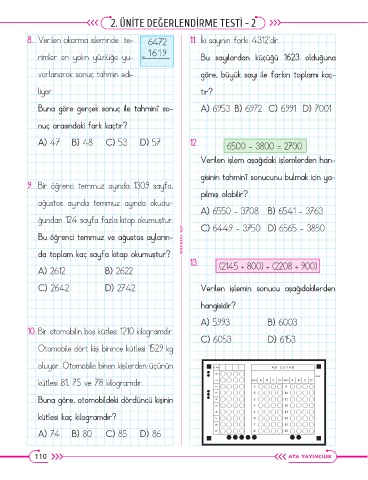 2. ÜNİTE DEĞERLENDİRME TESTİ - 2
8. Verilen çıkarma işleminde te-
rimler en yakın yüzlüğe yu-
varlanarak sonuç tahmin edi-
liyor.
6472
1619
Buna göre gerçek sonuç ile tahminî so-
nuç arasındaki fark kaçtır?
A) 47 B) 48 C) 53 D) 57
9. Bir öğrenci temmuz ayında 1309 sayfa,
ağustos ayında temmuz ayında okudu-
ğundan 124 sayfa fazla kitap okumuştur.
Bu öğrenci temmuz ve ağustos ayların-
da toplam kaç sayfa kitap okumuştur?
A) 2612 B) 2622
C) 2642 D) 2742
10. Bir otomobilin boş kütlesi 1210 kilogramdır.
Otomobile dört kişi binince kütlesi 1529 kg
oluyor. Otomobile binen kişilerden üçünün
kütlesi 81, 75 ve 78 kilogramdır.
Buna göre, otomobildeki dördüncü kişinin
kütlesi kaç kilogramdır?
A) 74 B) 80 C) 85 D) 86
11. İki sayının farkı 4312'dir.
Bu sayılardan küçüğü 1623 olduğuna
göre, büyük sayı ile farkın toplamı kaç-
tır?
A) 6953 B) 6972 C) 6991 D) 7001
12. 6500 - 3800 = 2700
Verilen işlem aşağıdaki işlemlerden han-
gisinin tahminî sonucunu bulmak için ya-
pılmış olabilir?
A) 6550 - 3708 B) 6541 - 3763
C) 6449 - 3750 D) 6565 - 3850
13. (2145 + 800) + (2208 + 900)
Verilen işlemin sonucu aşağıdakilerden
hangisidir?
A) 5993 B) 6003
C) 6053 D) 6153
ADI SOYADI
A B C D A B C D
110
ATA YAYINCILIK